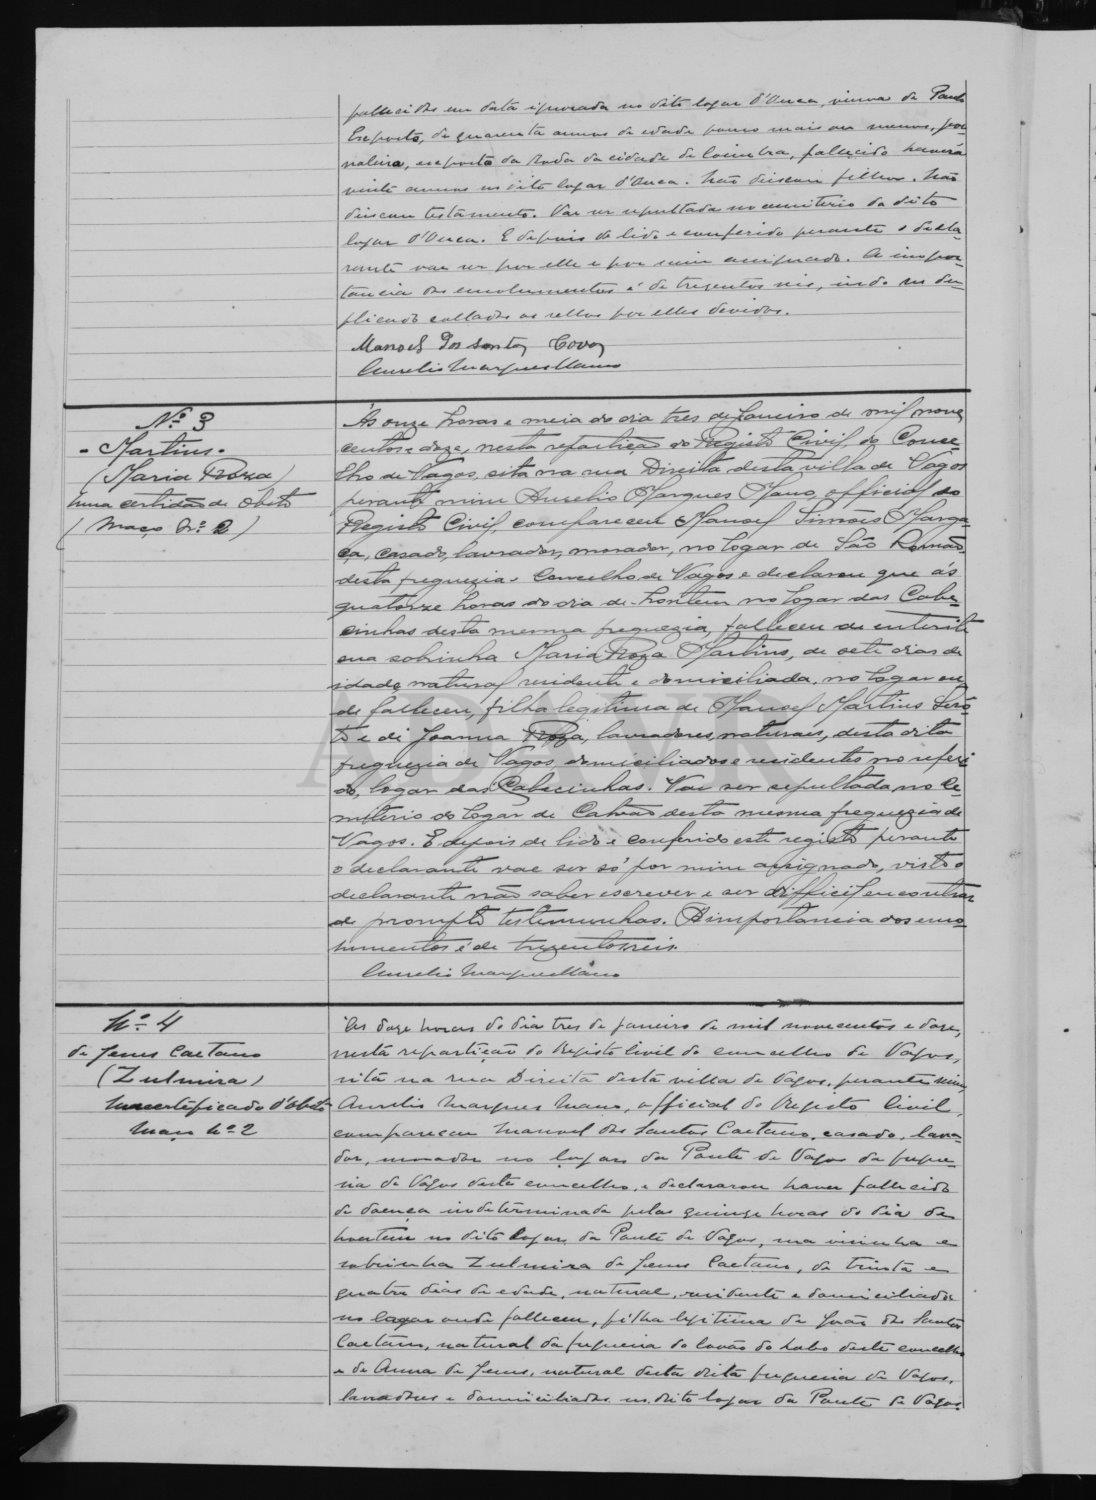 fallecidos em data ignorada no dito logar d'Ouca, viuva de Paulo
Exposto, de quarenta annos de edade pouco mais ou menos, jor-
naleiro, exposto da Roda da cidade de Coimbra, fallecido haverá
vinte annos no dito logar d'Ouca. Não deixou filhos. Não
deixou testamento. Vae ser sepultada no cemiterio do dito
logar d'Ouca. E depois de lido e conferido perante o decla-
rante vae ser por elle e por mim assignado. A impor-
tancia dos emolumentos é de trezentos reis, indo no du-
plicado collados os sellos por elles devidos.
Manoel dos Santos Covo
Aurelio Marques Mano
Nº 3
- Martins -
(Maria Roza)
Uma certidão de obito
(Maço Nº 2)
Ás onze horas e meia do dia tres de Janeiro de mil nove
centos e doze, nesta repartição do Registo Civil do Conce-
lho de Vagos, sita na rua Direita desta villa de Vagos
perante mim Aurelio Marques Mano, official do
Registo Civil, compareceu Manoel Simões Marga-
ça, casado, lavrador, morador, no logar de São Romão,
desta freguezia e Concelho de Vagos e declarou que ás
quatorze horas do dia de hontem no logar das Cabe-
cinhas desta mesma freguezia, falleceu de enterite
sua sobrinha Maria Roza Martins, de sete dias de
idade, natural residente e domiciliada, no logar on-
de falleceu, filha legitima de Manoel Martins
e de Joanna Roza, lavradores, naturaes, desta dita
freguezia de Vagos, domiciliados e residentes no referi
do, logar das Cabecinhas. Vai ser sepultada no Ce-
miterio do logar de Calvão desta mesma freguezia de
Vagos. E depois de lido e conferido este registo perante
o declarante vae ser só por mim assignado, visto o
declarante não saber escrever e ser difficil encontrar
de prompto testemunhas. A importancia dos emo-
lumentos é de trezentos reis.
Aurelio Marques Mano
Nº 4
de Jesus Caetano
(Zulmira)
Um certificado d'obito
Maço Nº 2
Ás doze horas do dia tres de janeiro de mil novecentos e doze,
nesta repartição do Registo Civil do concelho de Vagos,
sita na rua Direita desta villa de Vagos, perante mim,
Aurelio Marques Mano, official do Registo Civil,
compareceu Manoel dos Santos Caetano, casado, lavra-
dor, morador no logar da Ponte de Vagos da fregue-
zia de Vagos deste concelho, e declararou haver fallecido
de doença indeterminada pelas quinze horas do dia de
hontem no dito logar da Ponte de Vagos, sua visinha e
sobrinha Zulmira de Jesus Caetano, de trinta e
quatro dias de edade, natural, residente e domiciliada
no logar onde falleceu, filha legitima de João dos Santos
Caetano, natural da freguezia do Covão do Lobo deste concelho
e de Anna de Jesus, natural desta dita freguezia de Vagos,
lavradores e domiciliados no dito logar da Ponte de Vagos.